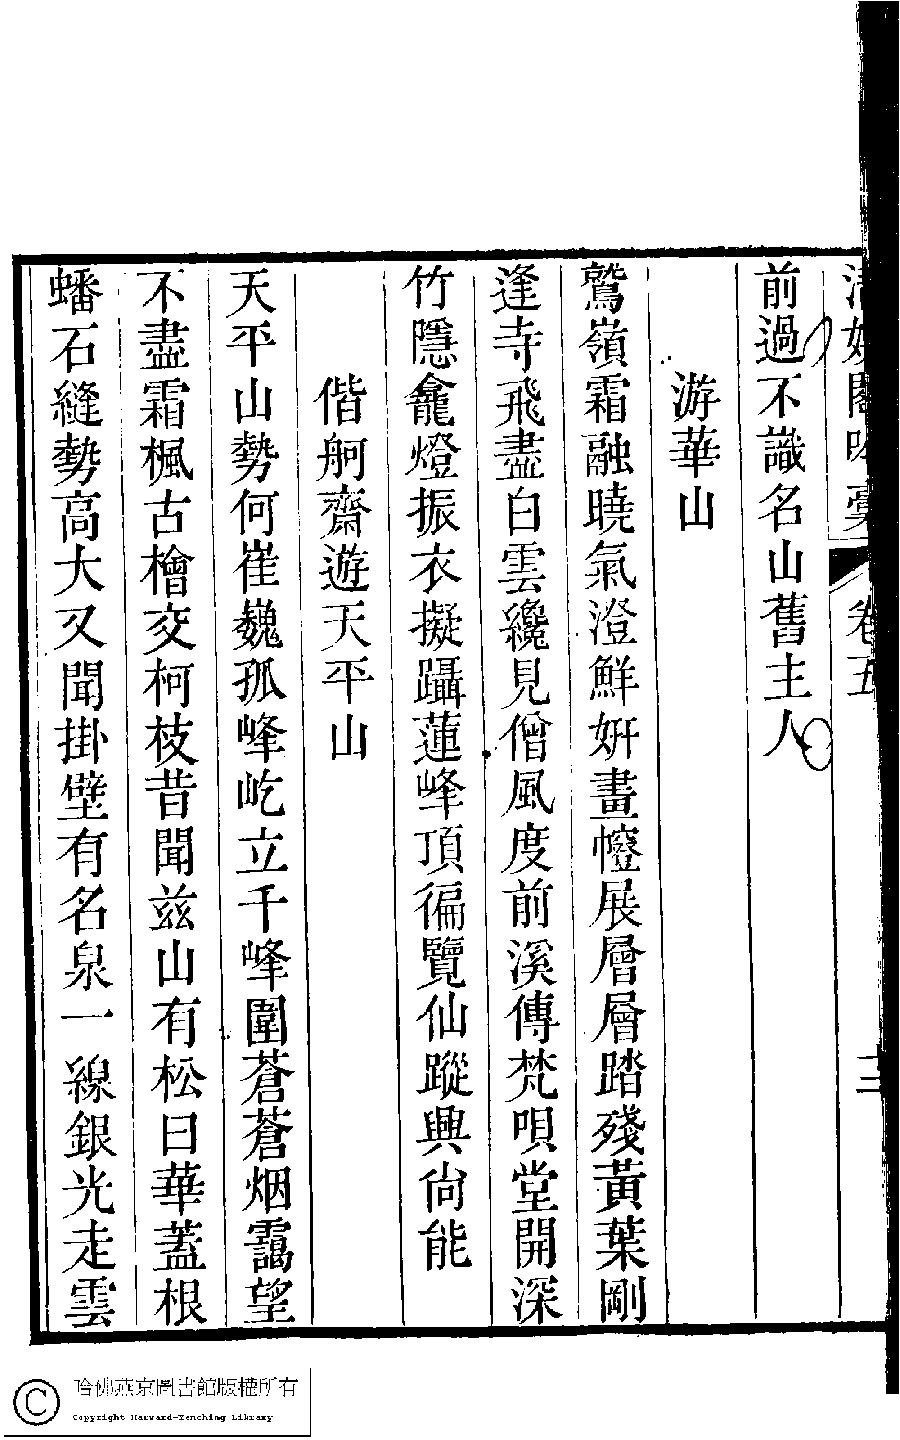 清娛閣吟稾 卷五 三
前過不識名山舊主人
游華山
鷲嶺霜融曉氣澄鮮妍畫幰展層層踏殘黃葉剛
逢寺飛盡白雲纔見僧風度前溪傳梵唄堂開深
竹隱龕燈振衣擬躡蓮峰頂徧覽仙蹤興尙能
偕舸齋遊天平山
天平山勢何崔巍孤峰屹立千峰圍蒼蒼烟靄望
不盡霜楓古檜交柯枝昔聞兹山有松曰華蓋根
蟠石縫勢高大又聞掛壁有名泉一線銀光走雲
哈佛燕京圖書館版權所有
Copyright Harvard-Yenching Library